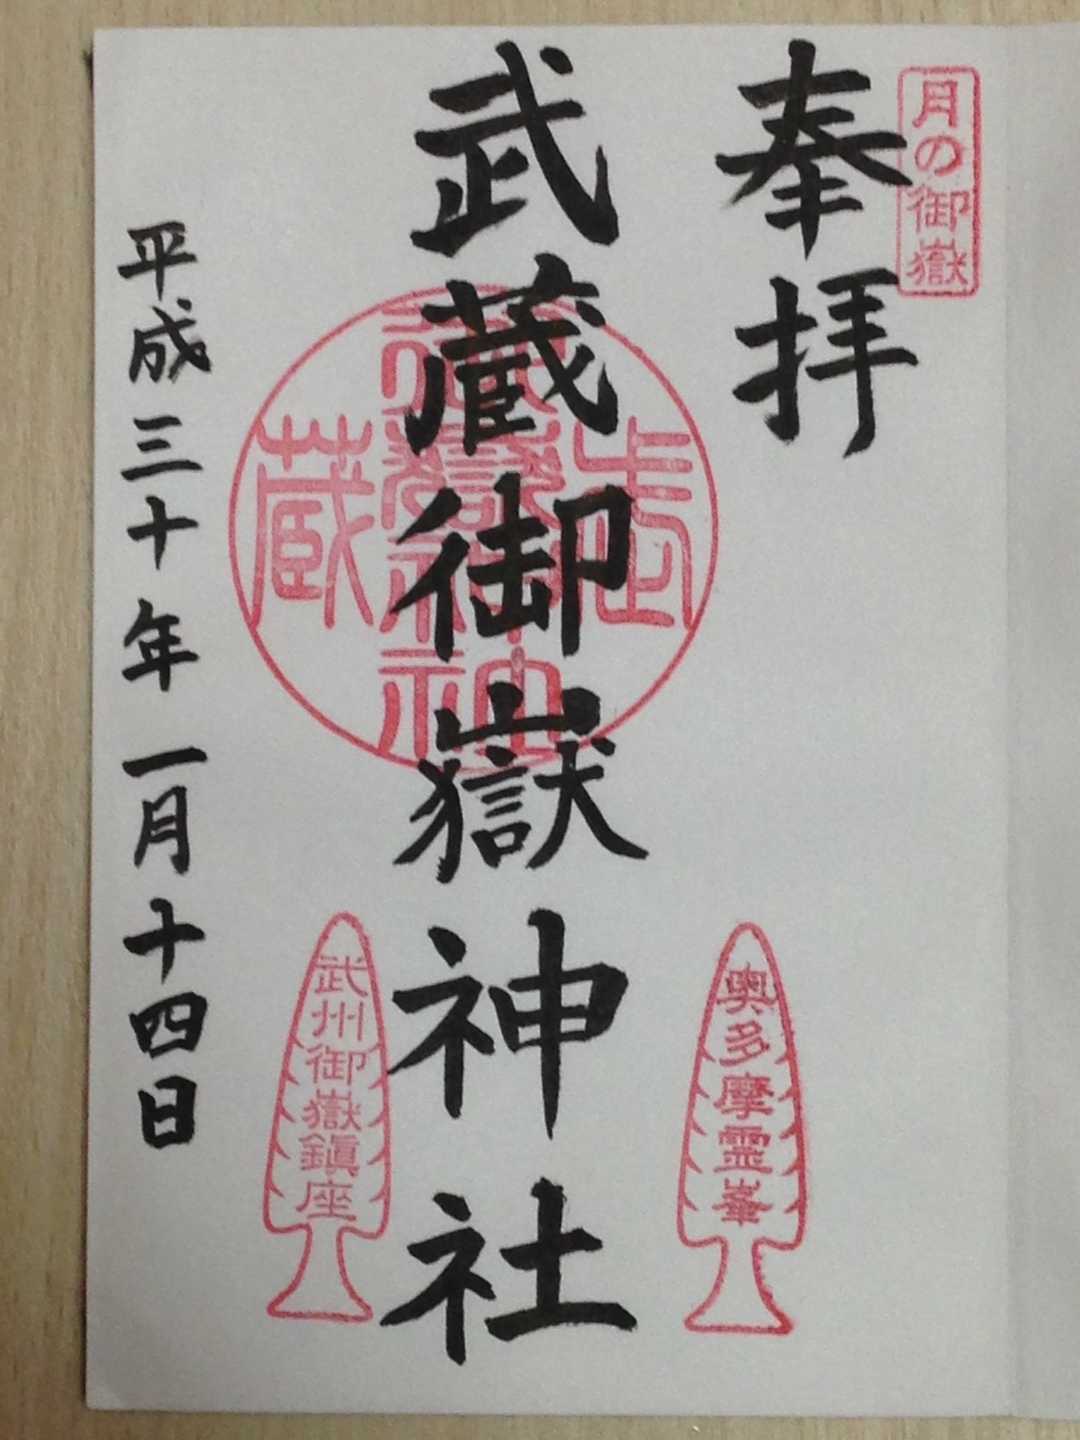 月の御嶽
奉拝
奥多摩霊峯
武蔵御嶽神社
武蔵御嶽神社
武州御嶽鎮座
平成三十年一月十四日